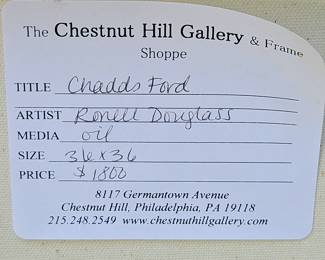 The Chestnut Hill Gallery & Frame
Shoppe
TITLE Chadds Ford
ARTIST Ronell Douglass
MEDIA oil
SIZE 36x36
PRICE $1800
8117 Germantown Avenue
Chestnut Hill, Philadelphia, PA 19118
215.248.2549 www.chestnuthillgallery.com